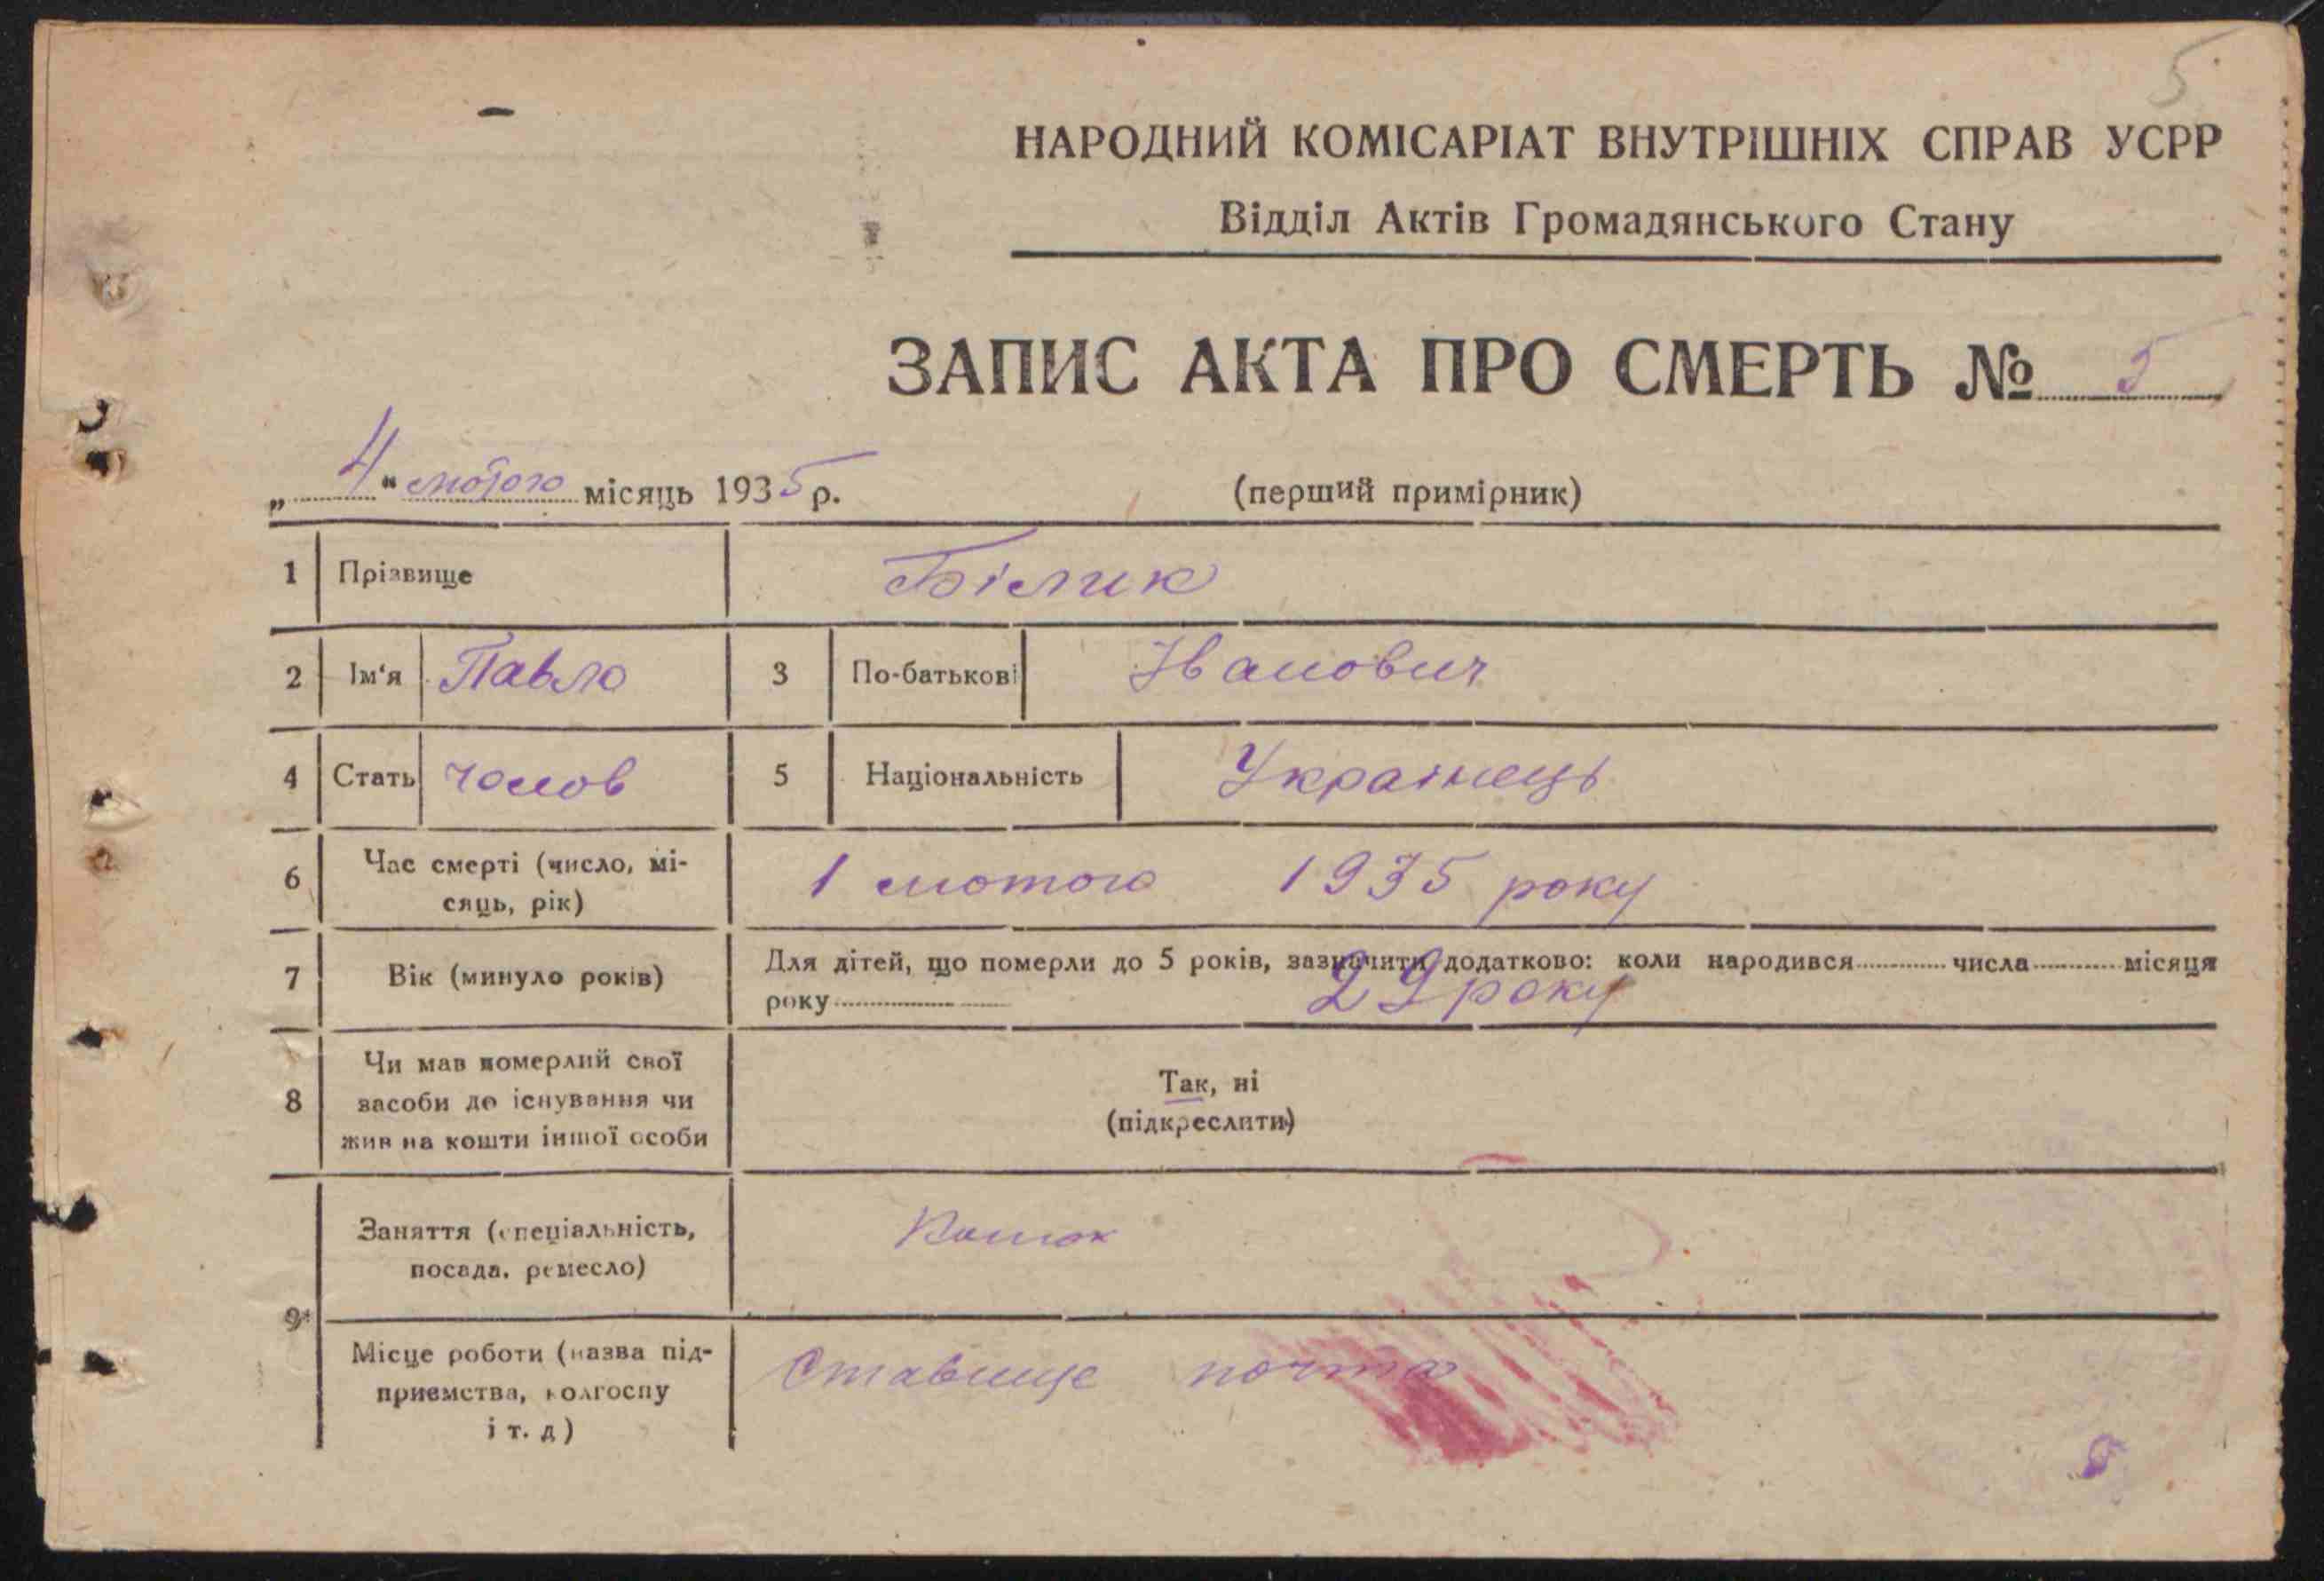 5
НАРОДНИЙ КОМІСАРІАТ ВНУТРІШНІХ СПРАВ УСРР
Відділ Актів Громадянського Стану
ЗАПИС АКТА ПРО СМЕРТЬ № 5
„ 4 “ лютого місяць 1935 р. (перший примірник)
1 Прізвище Білик
2 Ім'я Павло 3 По-батькові Іванович
4 Стать чолов 5 Національність Українець
6 Час смерті (число, мі-
сяць, рік) 1 лютого 1935 року
7 Вік (минуло років) Для дітей, що померли до 5 років, зазначити додатково: коли народився числа місяця
року 29 року
8 Чи мав померлий свої
засоби до існування чи
жив на кошти іншої особи
Так, ні
(підкреслити)
9 Заняття (спеціальність,
посада, ремесло)
Місце роботи (назва під-
приємства, колгоспу
і т. д)
Ставище почта